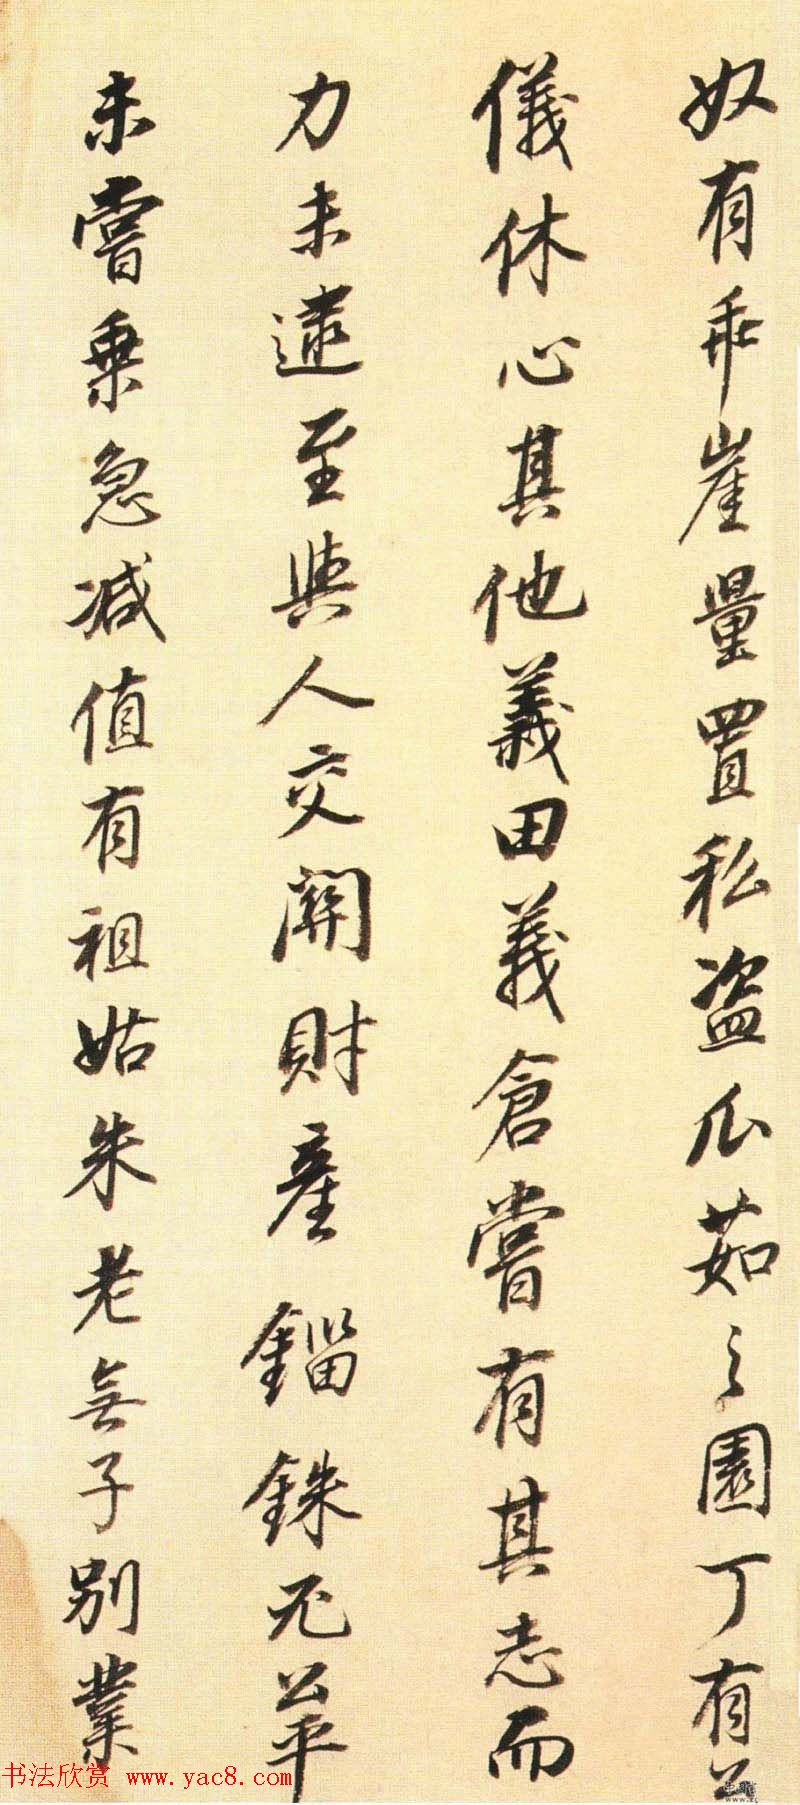 奴有乖崖量置私盗瓜茹之園丁有公
儀休心其他義田義倉嘗有其志而
力未逮至與人交關財產錙銖不苟平
未嘗乗急减值有祖姑朱老無子别業
书法欣赏 www.yac8.com